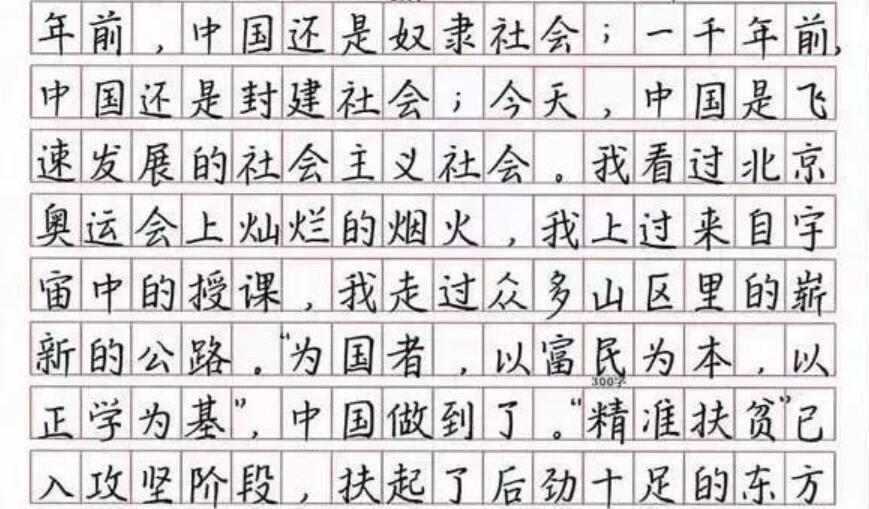 年前，中国还是奴隶社会；一千年前，
中国还是封建社会；今天，中国是飞
速发展的社会主义社会。我看过北京
奥运会上灿烂的烟火，我上过来自宇
宙中的授课，我走过众多山区里的崭
新的公路。“为国者，以富民为本，以
300字
正学为基”，中国做到了。“精准扶贫”已
入攻坚阶段，扶起了后劲十足的东方